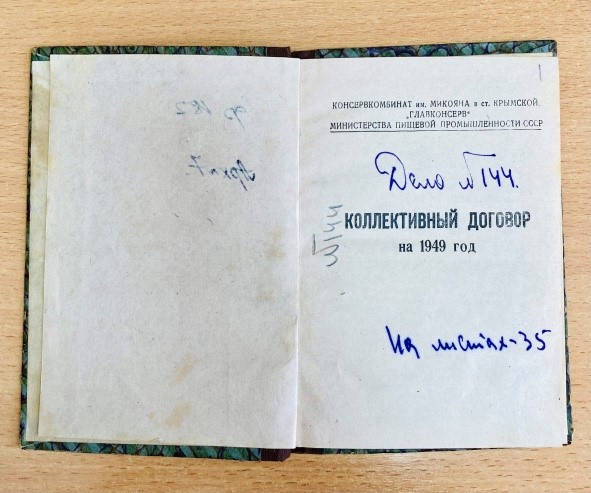 ф 182
Арх. 7.
1
КОНСЕРВКОМБИНАТ им. МИКОЯНА в ст. КРЫМСКОЙ
„ГЛАВКОНСЕРВ"
МИНИСТЕРСТВА ПИЩЕВОЙ ПРОМЫШЛЕННОСТИ СССР
Дело №144.
№144
КОЛЛЕКТИВНЫЙ ДОГОВОР
на 1949 год
На листах-35